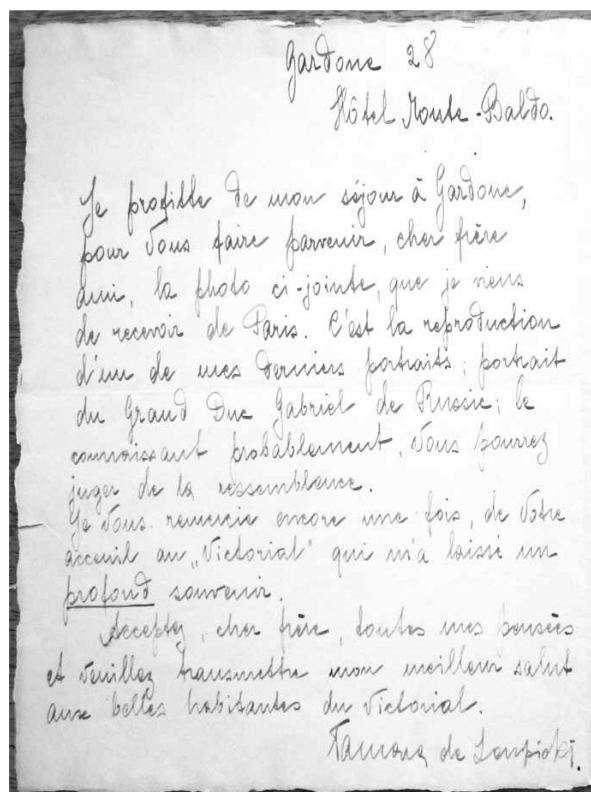 Gardone 28
Hôtel Monte-Baldo.
Je profitte de mon séjour à Gardone,
pour Vous faire parvenir, cher frère
ami, la photo ci-jointe, que je viens
de recevoir de Paris. C'est la reproduction
d'un de mes derniers portraits; portrait
du Grand Duc Gabriel de Russie; le
connaissant probablement, Vous pourrez
juger de la ressemblance.
Je Vous remercie encore une fois, de Votre
acceuil au „Victorial" qui m'a laissé un
profond souvenir.
Acceptez, cher frère, toutes mes pensées
et veuillez transmettre mon meilleur salut
aux belles habitantes du Victorial.
de